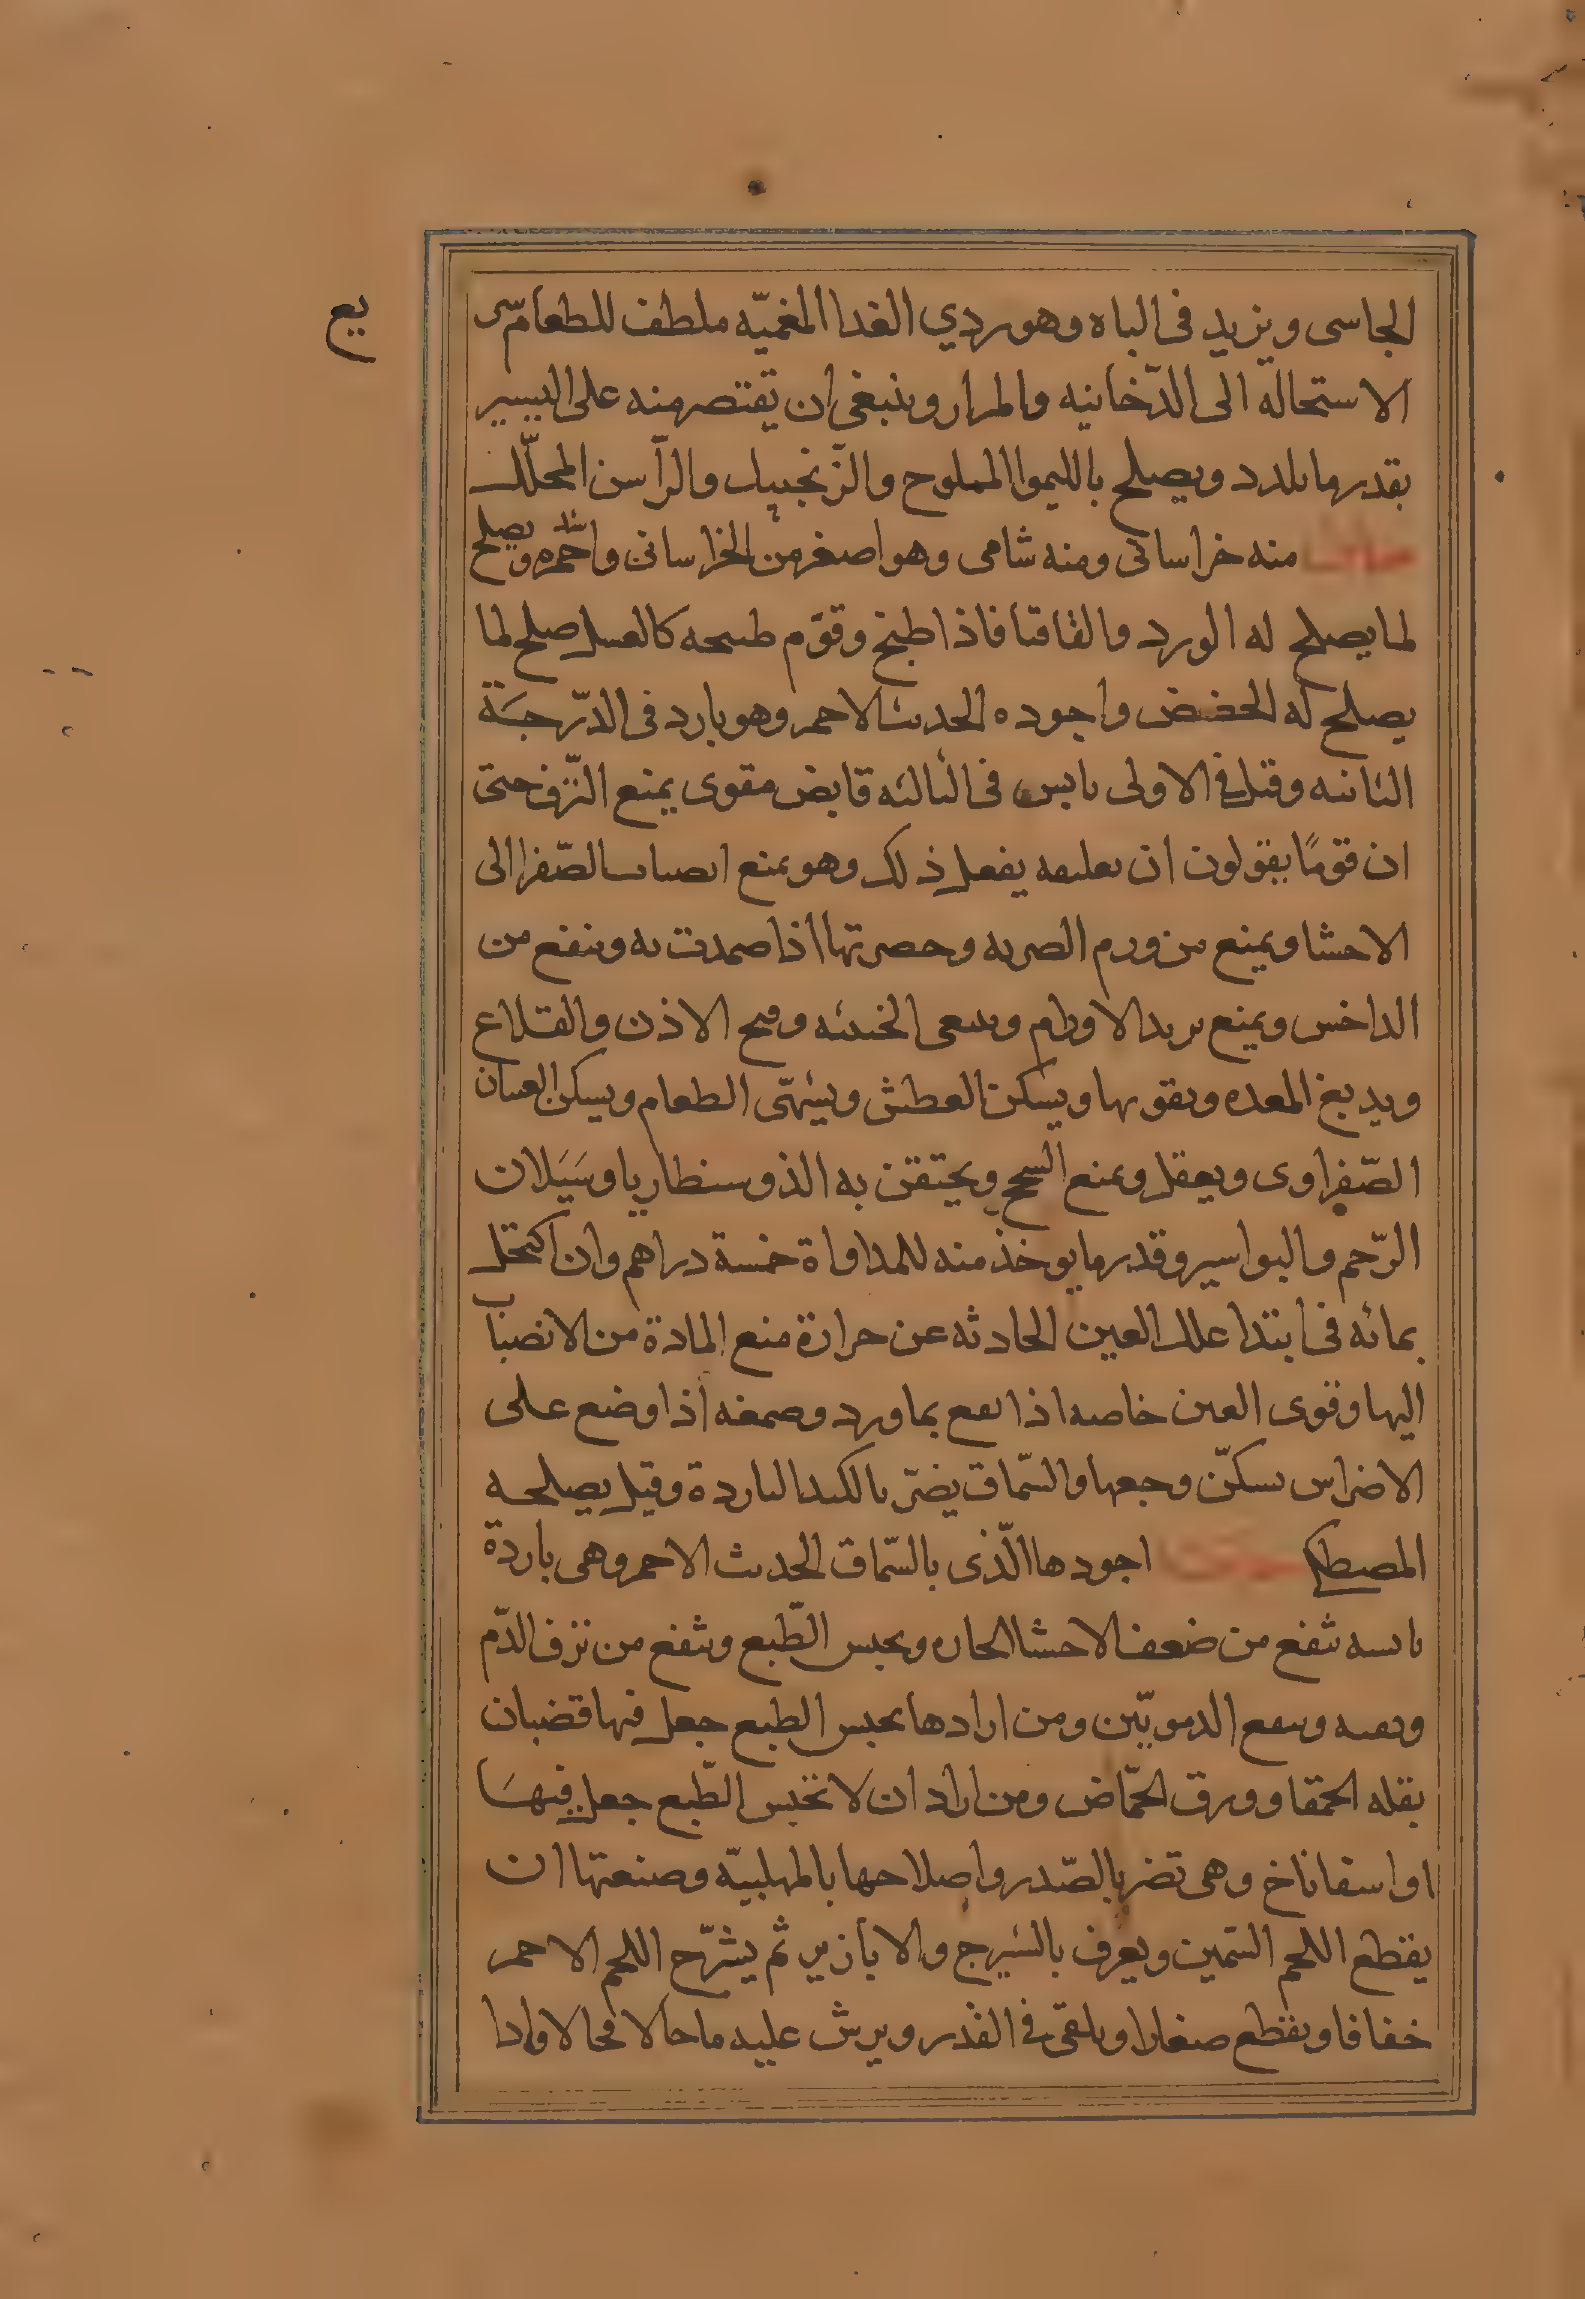 يع
الجاسى ويزيد فى الباه وهو ردي الغدا المغميّه ملطف للطعام سر
الاستحالة الى الدّخانيه والمرار وينبغى ان يقتصر منه على اليسير
بقدر ما يلدد ويصلح بالليموا المملوح والزّنجبيل والرآسن المحلّل
منه خراسانى ومنه شامى وهو اصغر من الخراسانى واشد حمره ويصلح
لما يصلح له الورد والقاقيا فاذا طبخ وقوّم طبيخه كالعسل صلح لما
يصلح له الحضض واجوده الحديث الاحمر وهو بارد فى الدّرجة
الثانيه وقيل فى الاولى يابس فى الثالثه قابض مقوى يمنع النّزف حتى
ان قومًا يقولون ان تعليقه يفعل ذلك وهو يمنع انصباب الصّفرا الى
الاحشا ويمنع من ورم الضربه وحصرتها اذا ضمدت به وينفع من
الداخس ويمنع تزيد الاورام وسعى الخبيثه وقيح الاذن والقلاع
ويدبغ المعده ويقويها ويسكن العطش ويشهّى الطعام ويسكن الغثيان
الصّفراوى ويعقل ويمنع السحج ويحتقن به الذوسنطاريا وسَيَلان
الرّحم والبواسير وقدر ما يوخذ منه للمداواة خمسة دراهم وان اكتحل
بمائه فى ابتدا علل العين الحادثه عن حرارة منع المادة من الانصباب
اليها وقوى العين خاصه اذا نقع بماورد وصمغه اذا وضع على
الاضراس يسكّن وجعها والسّماق يضرّ بالكبد الباردة وقيل يصلحه
المصطكى اجودها الّذى بالسّماق الحديث الاحمر وهى باردة
يابسه تنفع من ضعف الاحشا الحاره ويحبس الطّبع وينفع من نزف الدّم
وينفع الدمويّين ومن ارادها بحبس الطبع جعل فيها قضبان
بقله الحمقا وورق الحمّاض ومن اراد ان لا تحبس الطّبع جعل فيها
او اسفاناخ وهى تضر بالصّدر واصلاحها بالمهلبيّه وصنعتها ان
يقطع اللحم السّمين ويعرف بالشيرج والابازير ثم يشرّح اللحم الاحمر
خفافا ويقطع صغارا ويلقى فى القدر ويرش عليه ما حالا فحالا واذا